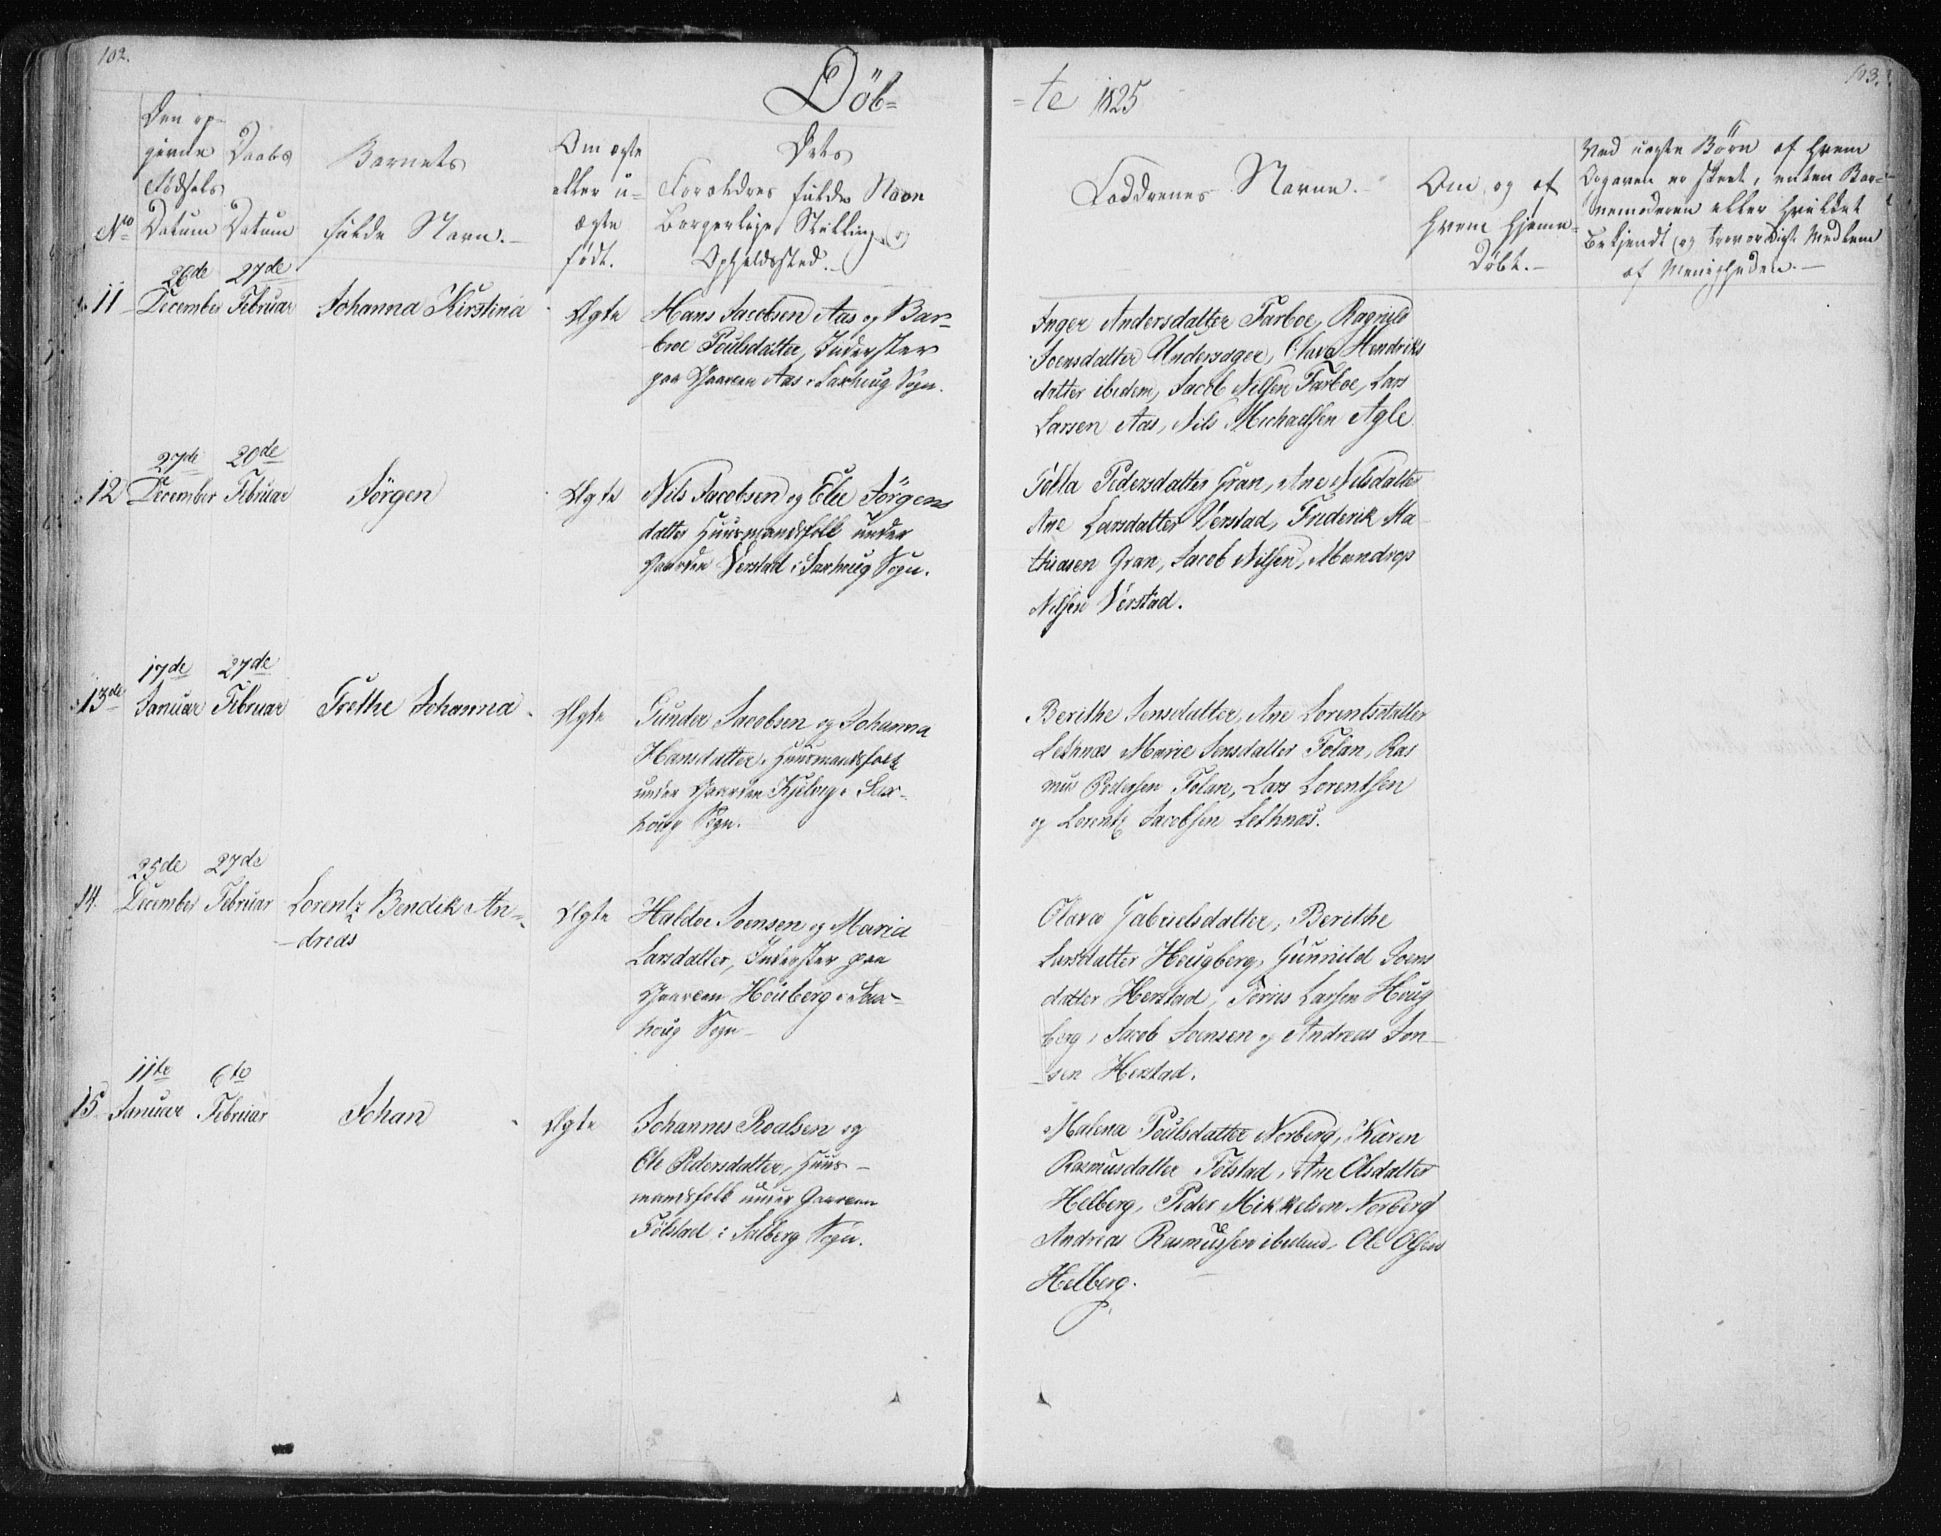 102.
103.
Döb=
=te 1825
Den op=
givne
Fødsels
Datum
No
Daabs
Datum
Barnets
fulde Navn.
Om ægte
eller u=
ægte
født.
Dets
Forældres fulde Navn
borgerlige Stilling og
Opholdssted.
Faddrenes Navne.
Om og af
hvem hjemme=
døbt.
Ved uægte Børn af hvem
Opgaven er skeet, enten Bar=
nemoderen eller hvilket
bekjendt og troværdigt Medlem
af Menigheden.
11
26de December
27de Februar
Johanna Kirstina
Ægte
Hans Jacobsen Aas og Bar=
broe Poulsdatter, Inderster
paa Gaarden Aas i Saxhoug Sogn.
Inger Andersdatter Farboe, Ragnild
Joensdatter Undersager, Olava Hendriks
datter ibedem, Jacob Nilsen Farboe, Lars
Larsen Aas, Nils Michaelsen Agle
12
27de December
20de Februar
Jörgen
Ægte
Nils Jacobsen og Elie Jörgens
datter Huusmandsfolk under
Gaarden Verstad i Saxhoug Sogn.
Pedersdatter Gran, Ane Nilsdatter
Ane Larsdatter Verstad, Frederik Ma
thiasen Gran, Jacob Nilsen, Mandrop
Nilsen Verstad.
13de
17de Januar
27de Februar
Grethe Johanna
Ægte
Gunder Jacobsen og Johanna
Hansdatter, Huusmandsfolk
under Gaarden i Sax=
houg Sogn.
Berithe Jensdatter, Ane Lorentsdatter
Lethnæs Marie Jensdatter Tolan, Ras
mus Pedersen Tolan, Lars Lorentsen
og Lorentz Jacobsen Lethnæs.
14.
25de December
27de Februar
Lorentz Bendik An=
=dreas
Ægte
Haldoe Joensen og Maria
Larsdatter, Inderster paa
Gaarden Houberg i Sax=
houg Sogn
Olava Gabrielsdatter, Berithe
Larsdatter Hougberg, Gunnild Joens
datter Herstad, Larsen Houg
berg, Jacob Joensen og Andreas Jon=
sen Herstad.
15.
11te Januar
6te Februar
Johan
Ægte
Johannes Roalsen og
Ele Pedersdatter, Huus=
mandsfolk under Gaarden
Tölstad i Salberg Sogn.
Malena Poulsdatter Norberg, Karen
Rasmusdatter Tølstad, Ane Olsdatter
Helberg, Peder Mikkelsen Norberg
Andreas Rasmussen ibedem, Ole Olsen
Helberg.